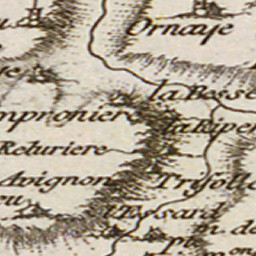 Ornaye
la Besse
mproniere
la Riper
Returiere
Avignon
Trifolle
eu
l'Essard
m. de